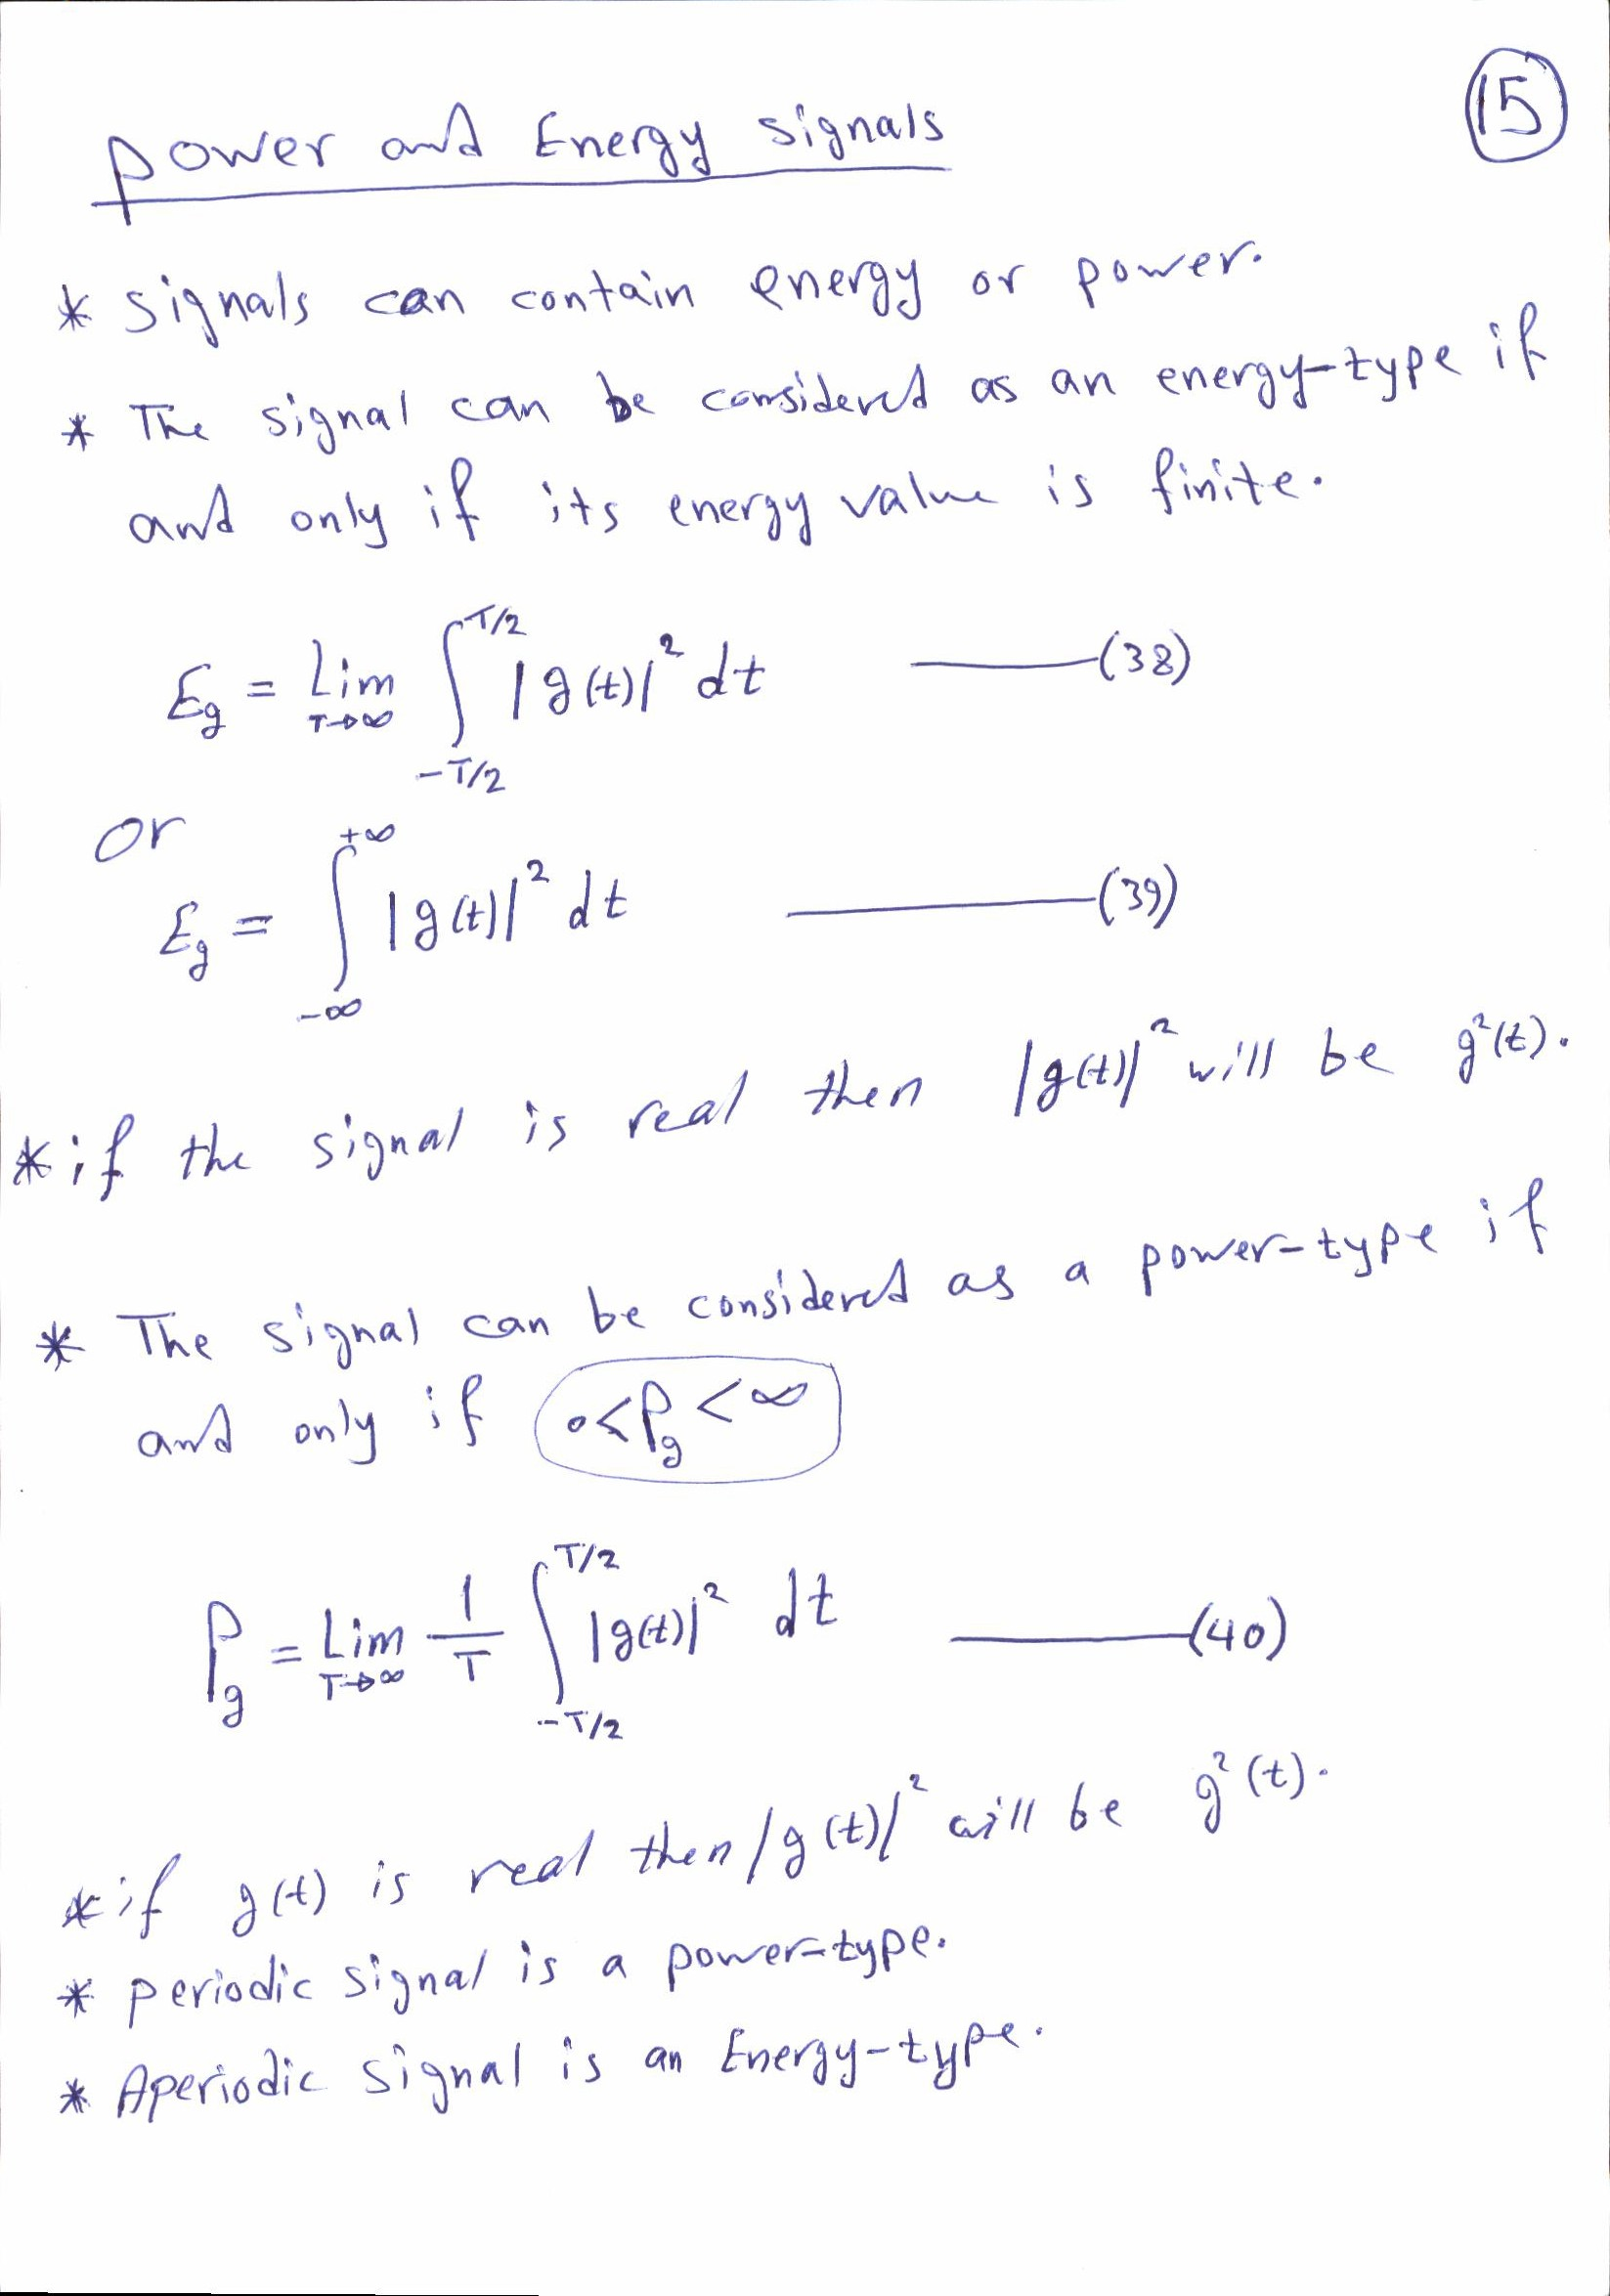 15
power and Energy signals
* signals can contain energy or power.
* The signal can be considered as an energy-type if
and only if its energy value is finite.
E_g = Lim_{T→∞} ∫_{-T/2}^{T/2} |g(t)|² dt ———(38)
or
E_g = ∫_{-∞}^{+∞} |g(t)|² dt ———(39)
* if the signal is real then |g(t)|² will be g²(t).
* The signal can be considered as a power-type if
and only if 0<P_g<∞
P_g = Lim_{T→∞} 1/T ∫_{-T/2}^{T/2} |g(t)|² dt ———(40)
* if g(t) is real then |g(t)|² will be g²(t).
* periodic signal is a power-type.
* Aperiodic signal is an Energy-type.